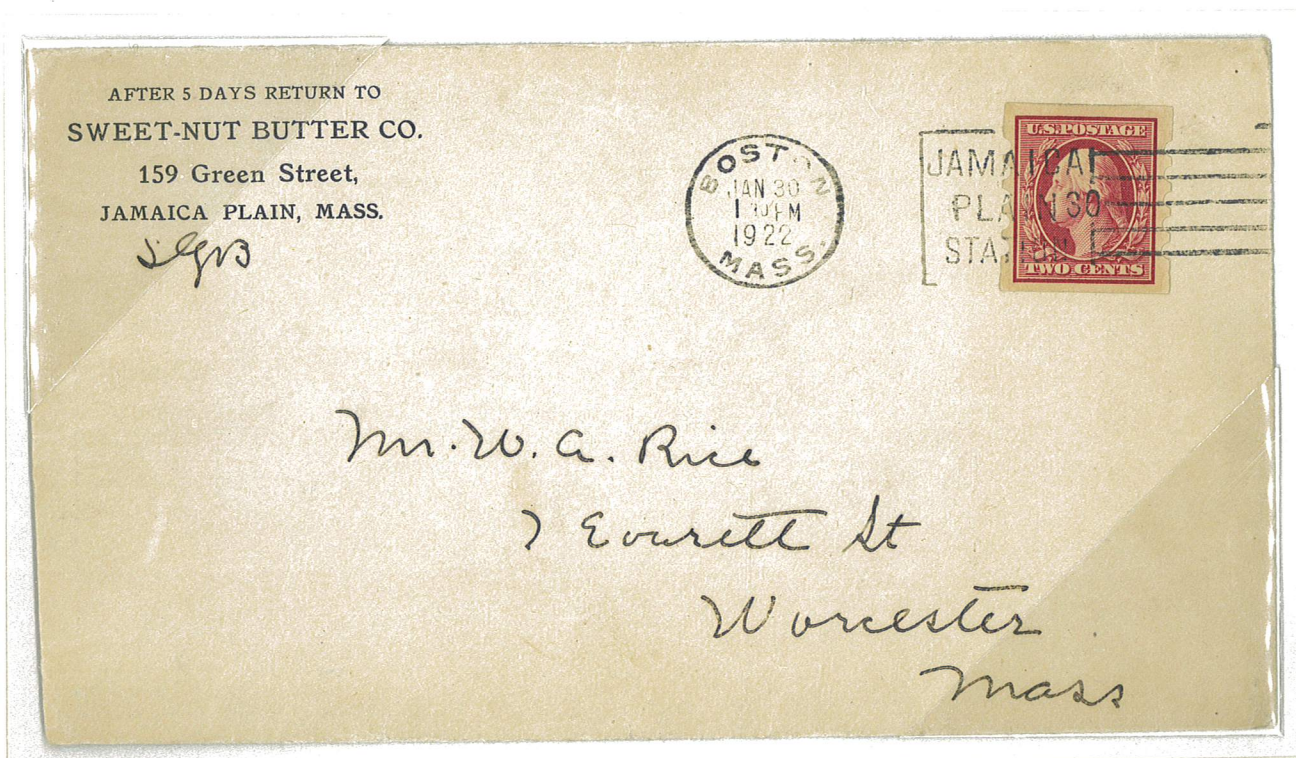 AFTER 5 DAYS RETURN TO
SWEET-NUT BUTTER CO.
159 Green Street,
JAMAICA PLAIN, MASS.
BOSTON
JAN 30
1 30 PM
1922
MASS.
JAMAICA
PLAIN 30
STATION
U.S. POSTAGE
TWO CENTS
Mr. W. A. Rice
7 Everett St
Worcester
Mass